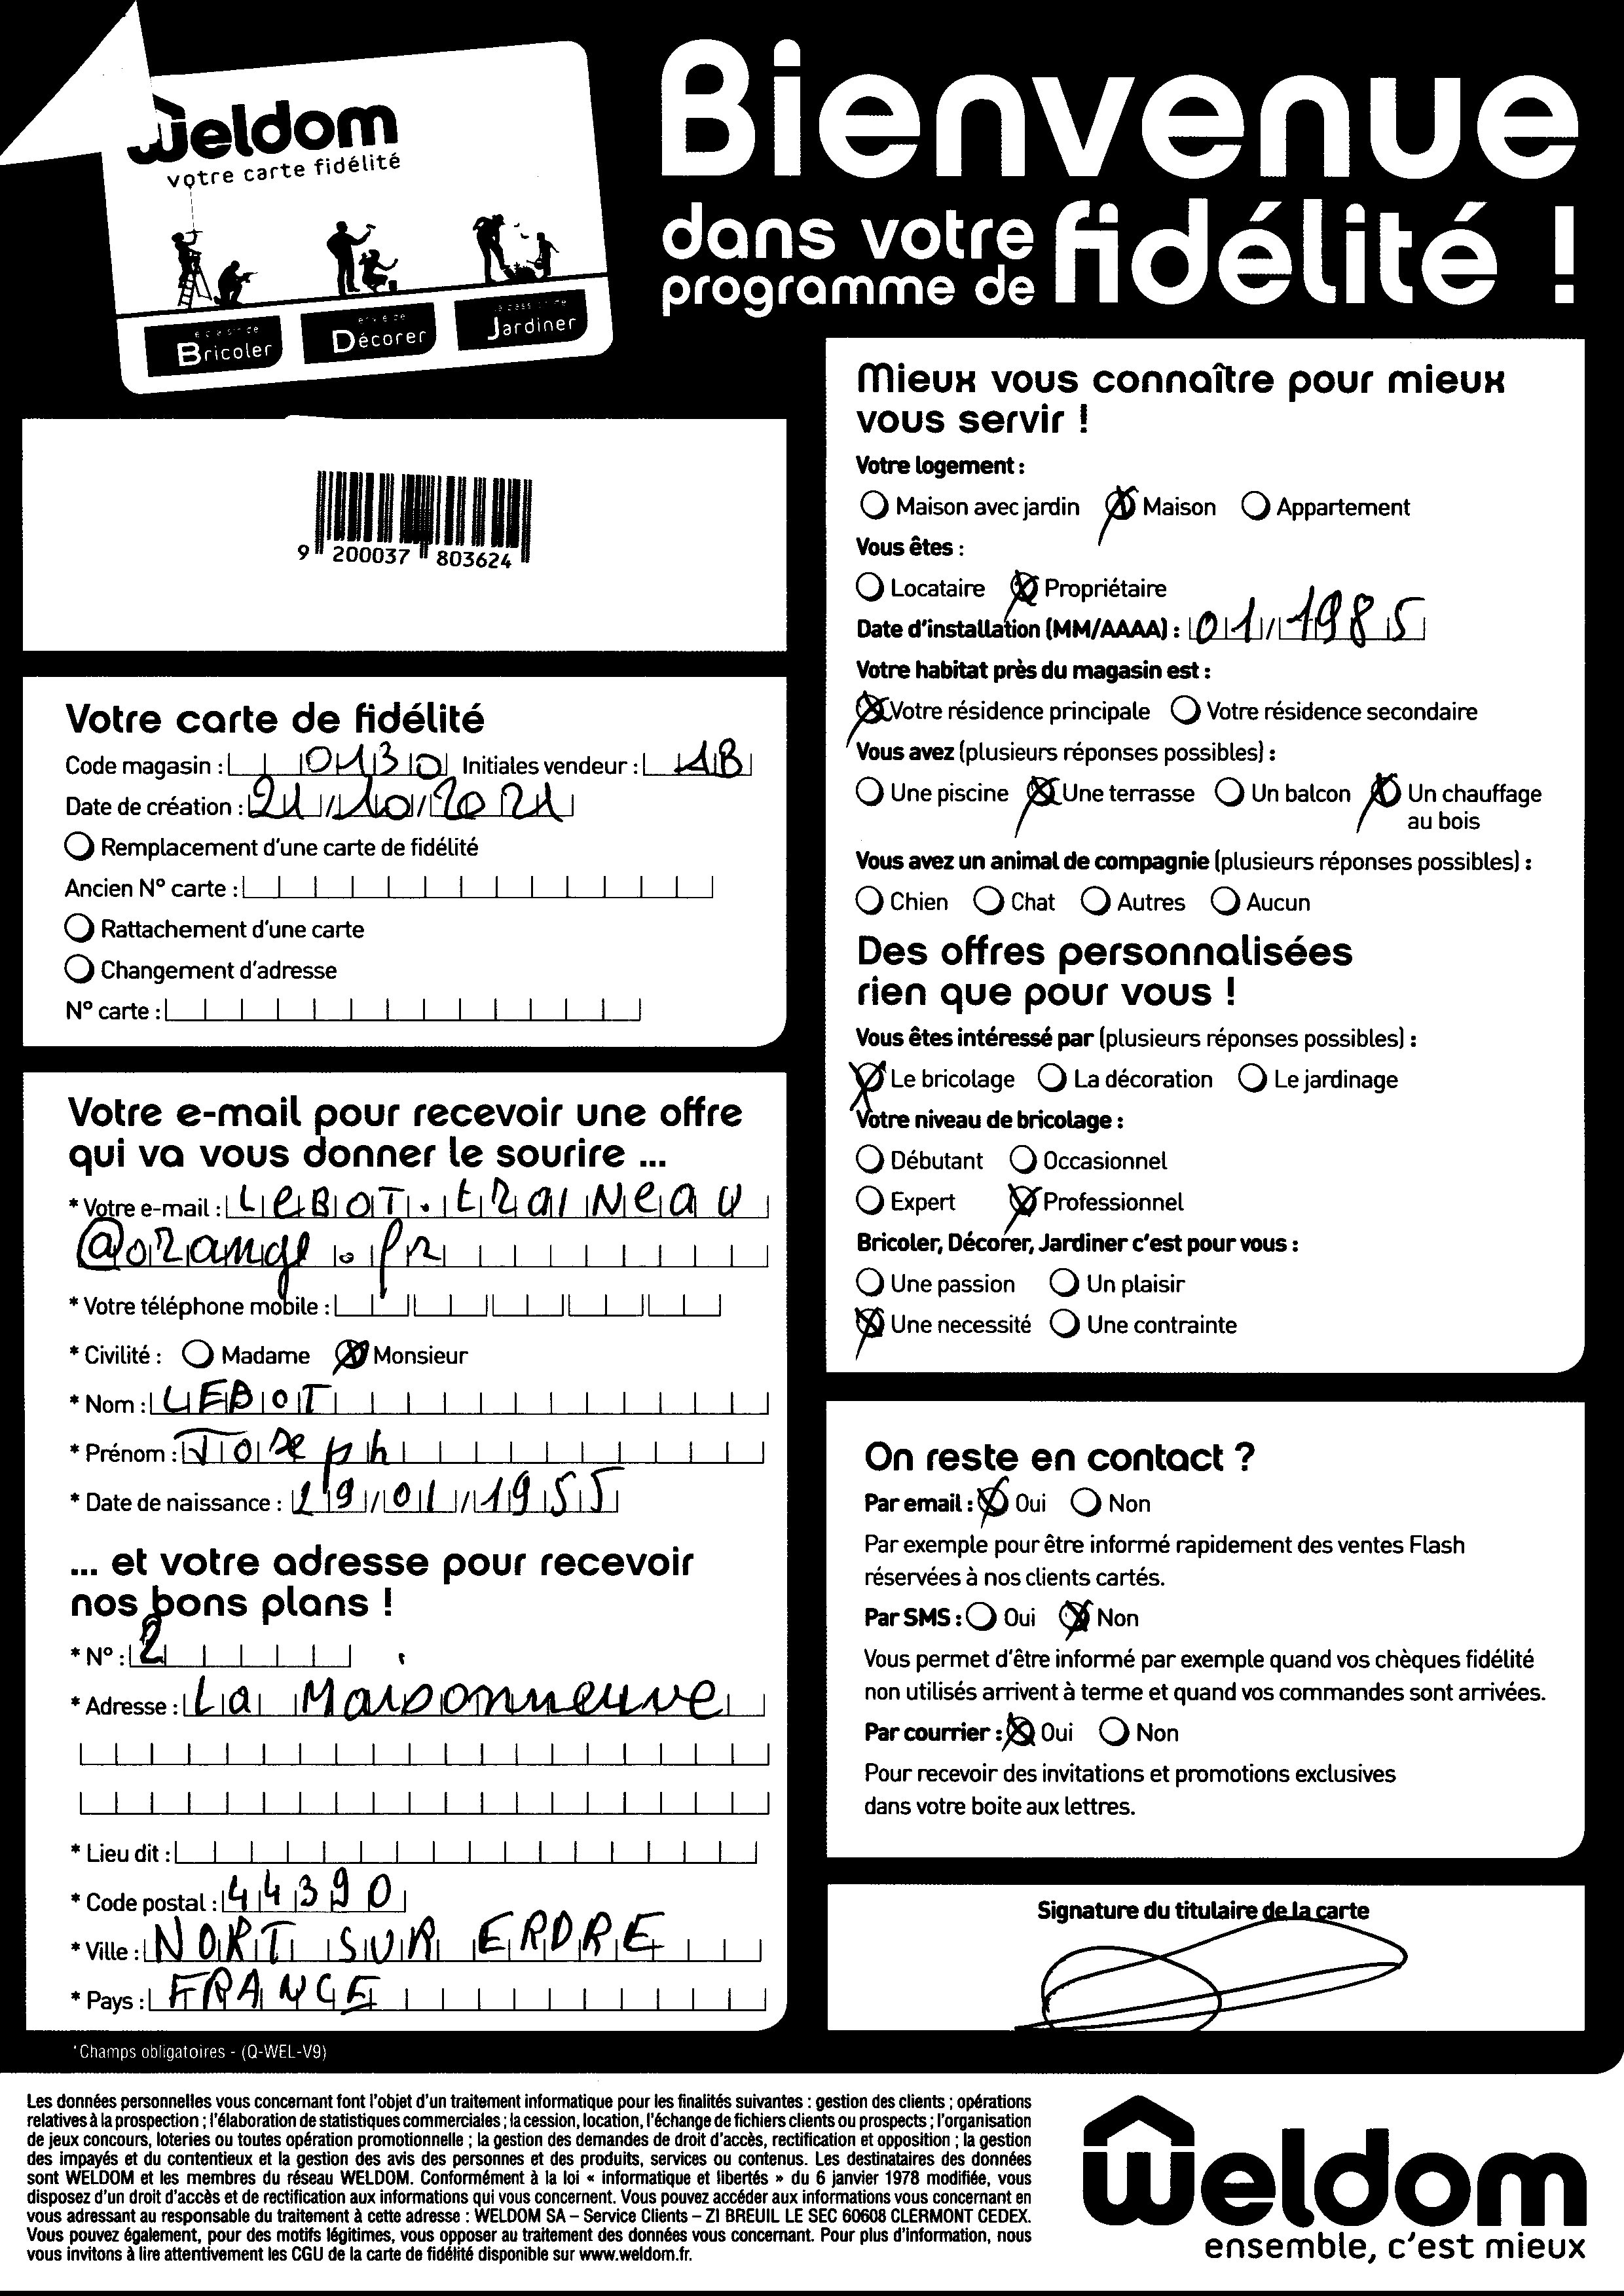 Weldom
votre carte fidélité
Bricoler
Décorer
Jardiner
Bienvenue
dans votre
programme de fidélité !
9 200037 803624
Votre carte de fidélité
Code magasin : 0130 Initiales vendeur : AB
Date de création : 21/10/2021
Remplacement d'une carte de fidélité
Ancien N° carte :
Rattachement d'une carte
Changement d'adresse
N° carte :
Votre e-mail pour recevoir une offre
qui va vous donner le sourire ...
* Votre e-mail : LeBOT.traiNeau
@orange.fr
* Votre téléphone mobile :
* Civilité : Madame Monsieur
* Nom : LEBOT
* Prénom : Joseph
* Date de naissance : 29/01/1955
... et votre adresse pour recevoir
nos bons plans !
* N° : 2
* Adresse : La Maisonneuve
* Lieu dit :
* Code postal : 44390
* Ville : NORT SUR ERDRE
* Pays : FRANCE
*Champs obligatoires - (Q-WEL-V9)
Mieux vous connaître pour mieux
vous servir !
Votre logement :
Maison avec jardin Maison Appartement
Vous êtes :
Locataire Propriétaire
Date d'installation (MM/AAAA) : 01/1985
Votre habitat près du magasin est :
Votre résidence principale Votre résidence secondaire
Vous avez (plusieurs réponses possibles) :
Une piscine Une terrasse Un balcon Un chauffage
au bois
Vous avez un animal de compagnie (plusieurs réponses possibles) :
Chien Chat Autres Aucun
Des offres personnalisées
rien que pour vous !
Vous êtes intéressé par (plusieurs réponses possibles) :
Le bricolage La décoration Le jardinage
Votre niveau de bricolage :
Débutant Occasionnel
Expert Professionnel
Bricoler, Décorer, Jardiner c'est pour vous :
Une passion Un plaisir
Une necessité Une contrainte
On reste en contact ?
Par email : Oui Non
Par exemple pour être informé rapidement des ventes Flash
réservées à nos clients cartés.
Par SMS : Oui Non
Vous permet d'être informé par exemple quand vos chèques fidélité
non utilisés arrivent à terme et quand vos commandes sont arrivées.
Par courrier : Oui Non
Pour recevoir des invitations et promotions exclusives
dans votre boite aux lettres.
Signature du titulaire de la carte
Les données personnelles vous concernant font l'objet d'un traitement informatique pour les finalités suivantes : gestion des clients ; opérations
relatives à la prospection ; l'élaboration de statistiques commerciales ; la cession, location, l'échange de fichiers clients ou prospects ; l'organisation
de jeux concours, loteries ou toutes opération promotionnelle ; la gestion des demandes de droit d'accès, rectification et opposition ; la gestion
des impayés et du contentieux et la gestion des avis des personnes et des produits, services ou contenus. Les destinataires des données
sont WELDOM et les membres du réseau WELDOM. Conformément à la loi « informatique et libertés » du 6 janvier 1978 modifiée, vous
disposez d'un droit d'accès et de rectification aux informations qui vous concernent. Vous pouvez accéder aux informations vous concernant en
vous adressant au responsable du traitement à cette adresse : WELDOM SA – Service Clients – ZI BREUIL LE SEC 60608 CLERMONT CEDEX.
Vous pouvez également, pour des motifs légitimes, vous opposer au traitement des données vous concernant. Pour plus d'information, nous
vous invitons à lire attentivement les CGU de la carte de fidélité disponible sur www.weldom.fr.
weldom
ensemble, c'est mieux